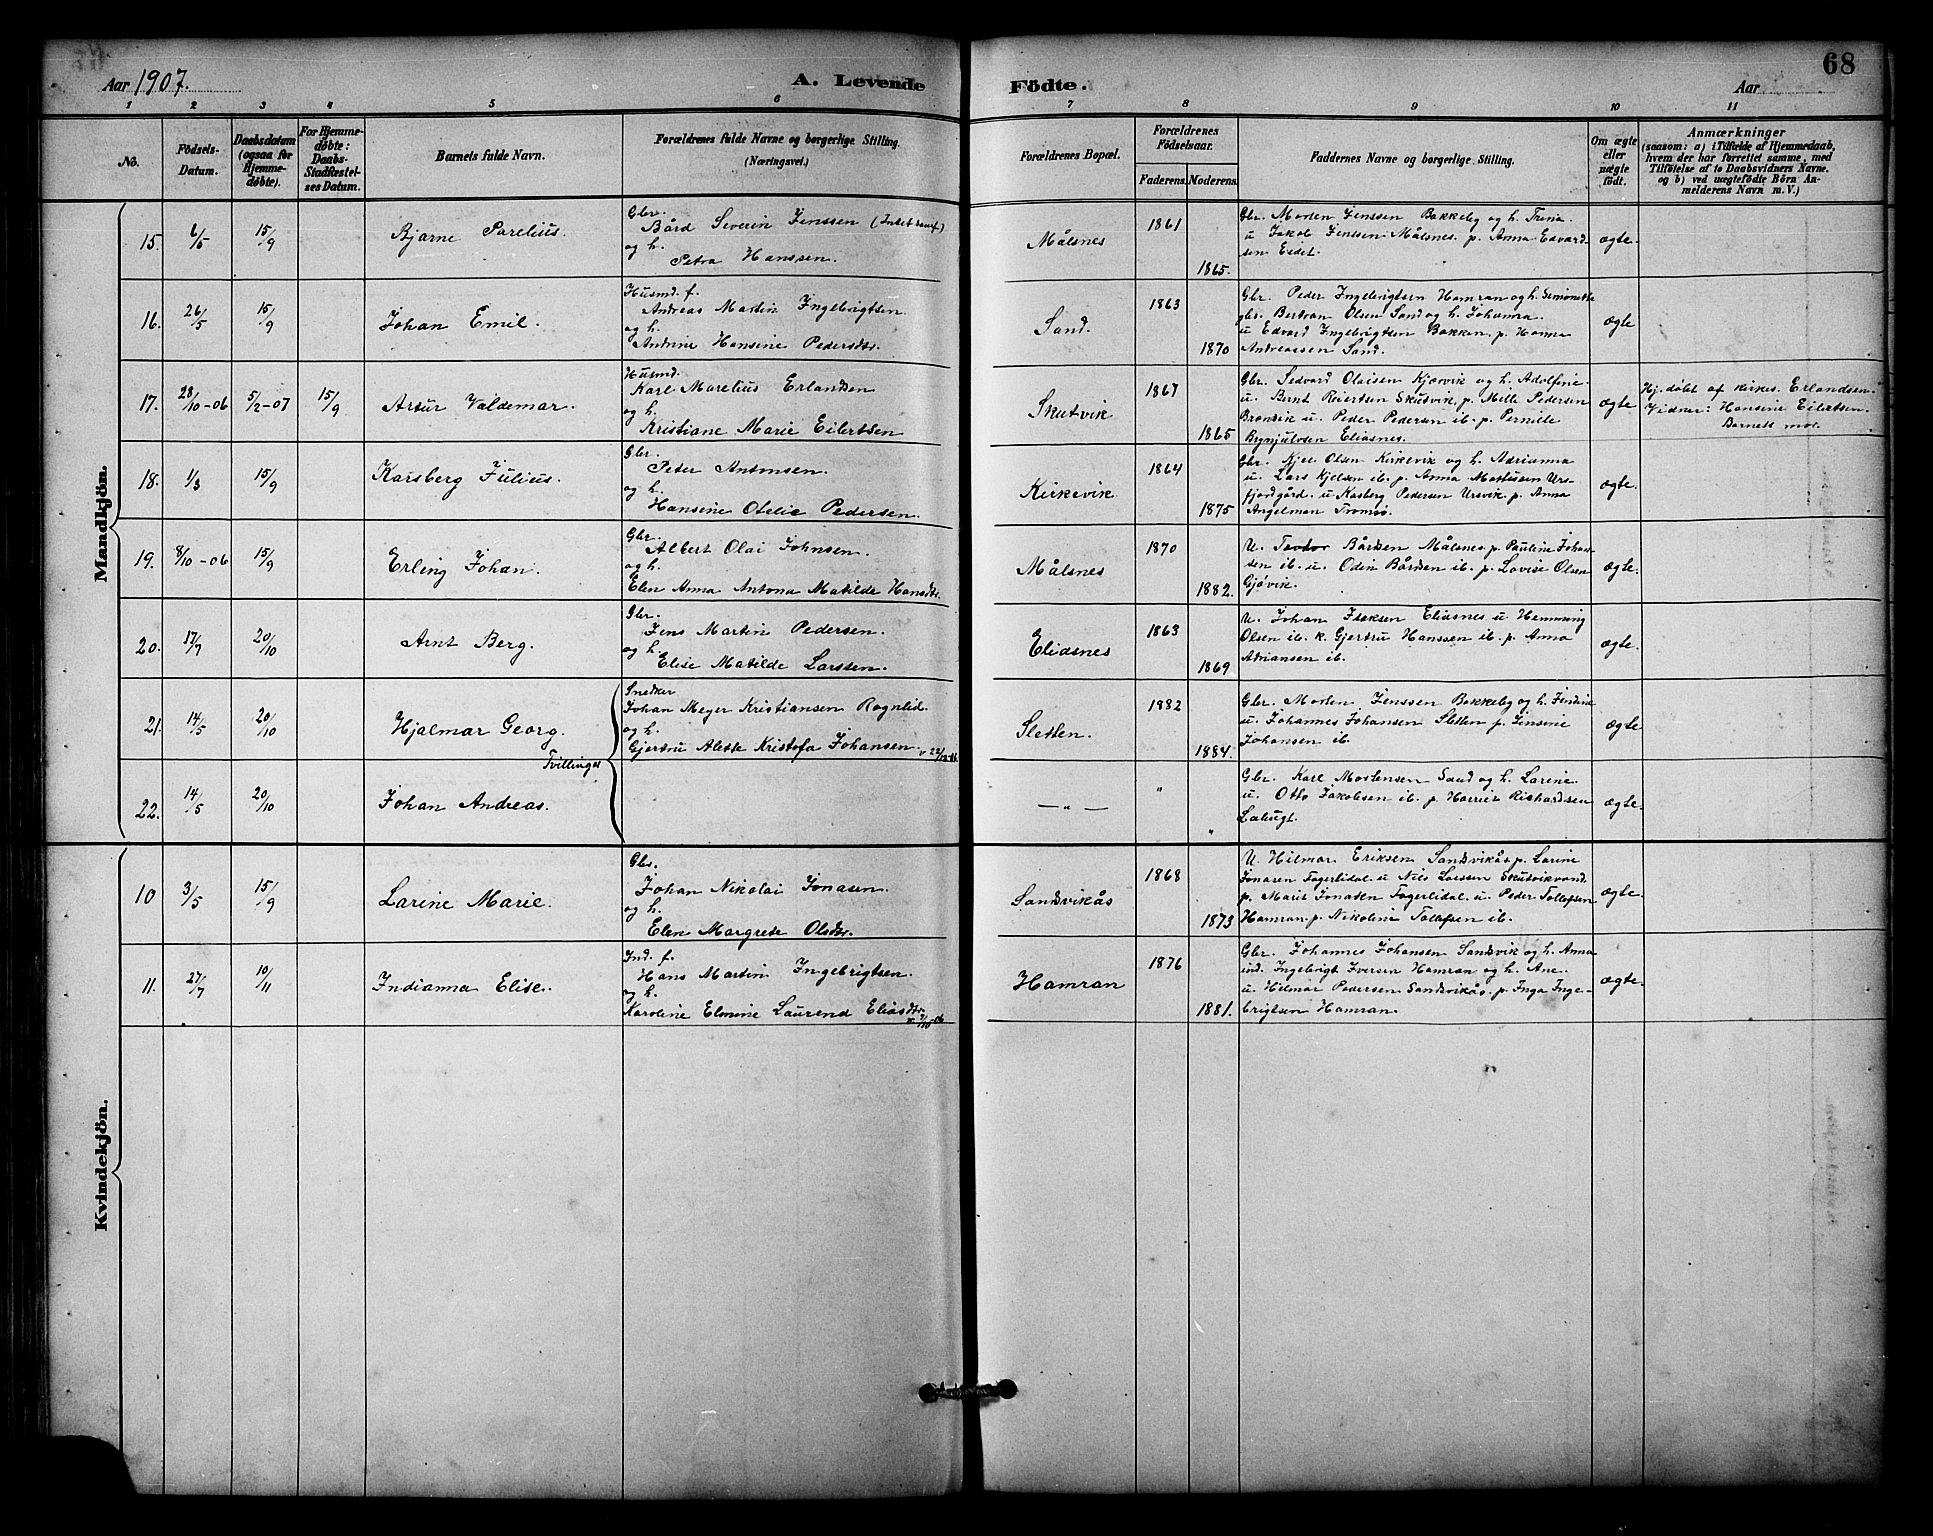 68
Aar 1907.
A. Levende Födte.
Aar
1 2 3 4 5 6 7 8 9 10 11
No.
Födsels-Datum.
Daabsdatum (ogsaa for Hjemme-döbte).
For Hjemme-döbte: Daabs-Stadfæstel-ses Datum.
Barnets fulde Navn.
Forældrenes fulde Navne og borgerlige Stilling. (Næringsvei.)
Forældrenes Bopæl.
Forældrenes Födselsaar.
Faderens. Moderens.
Faddernes Navne og borgerlige Stilling.
Om ægte eller uægte födt.
Anmærkninger
(saasom: a) i Tilfælde af Hjemmedaab,
hvem der har forrettet samme, med
Tilföielse af to Daabsvidners Navne.
og b) ved uægtefödte Börn An-
melderens Navn m. V.)
Mandkjön.
15. 6/5 15/9 Bjarne Parelius.
Gbr.
Bård Severin Jenssen (Indst samf.)
og h.
Petra Hanssen.
Målsnes 1861 1865.
Gbr. Morten Jenssen Bakkeby og h. Trina.
u Jakob Jenssen Målsnes. p. Anna Edvard-
sen Eidet.
ægte.
16. 26/5 15/9 Johan Emil.
Husmd. f.
Andreas Martin Ingebrigtsen
og h.
Andrine Hansine Pedersdtr.
Sand. 1863 1870
Gbr. Peder Ingebrigtsen Hamran og h. Simonette
gbr. Bertran Olsen Sand og h. Johanna
u Edvard Ingebrigtsen Bakken. p. Hanna
Andreassen Sand.
ægte
17. 28/10-06 5/2-07 15/9 Artur Valdemar.
Husmd.
Karl Marelius Erlandsen
og h.
Kristiane Marie Eilertsen
Skutvik 1867 1865
Gbr. Sedvard Olaisen Kjærvik og h. Adolfine
u. Bernt Reiertsen Skutvik, p. Mille Pedersen
u. Peder Pedersen ib. p. Pernille
Brynjulvsen Eliasnes.
ægte
Hj. döbt af kirkes. Erlandsen.
Vidner: Hansine Eilertsen.
Barnets mor.
18. 1/3 15/9 Karsberg Julius.
Gbr.
Peter Antonsen.
og h.
Hansine Otelie Pedersen.
Kirkevik 1864 1875
Gbr. Kjel Olsen Kirkevik og h. Adrianna
u. Lars Kjelsen ib. p. Anna Mathisen Urs-
fjordgård. u Kasberg Pedersen Ursvik. p. Anna
Angelman Tromsö.
ægte.
19. 8/10-06 15/9 Erling Johan.
Gbr.
Albert Olai Johnsen.
og h.
Elen Anna Antona Matilde Hansdtr.
Målsnes 1870 1882.
U. Teodor Bårdsen Målsnes. p. Pauline Johan-
sen ib. u. Odin Bårdsen ib. p. Lovise Olsen
Gjövik.
ægte.
20. 17/7 20/10 Arnt Berg.
Gbr.
Jens Martin Pedersen.
og h.
Elise Matilde Larssen.
Eliasnes 1863 1869
U. Johan Isaksen Eliasnes u Hemming
Olsen ib. k. Gjertru Hanssen ib. p. Anna
Adriansen ib.
ægte.
21. 14/5 20/10 Hjalmar Georg.
Tvillinger
Snedker
Johan Meyer Kristiansen Rognlid.
og h.
Gjertru Alette Kristofa Johansen. v 22/12-06.
Sletten. 1882 1884.
Gbr. Morten Jenssen Bakkeby og h. Jindine
u. Johannes Johansen Sletten p. Jensine
Johansen ib.
ægte
22. 14/5 20/10 Johan Andreas.
— " — " "
Gbr. Karl Mortensen Sand og h. Larine.
u. Otto Jakobsen ib. p. Harriet Rishardsen
ægte.
Kvindekjön.
10 3/5 15/9 Larine Marie.
Gbr.
Johan Nikolai Jonasen.
og h.
Elen Margrete Olsdtr.
Sandvikås 1868 1873
U. Hilmar Eriksen Sandvikås p. Larine
Jonasen Fagerlidal. u Nils Larssen Skutvikvand
p. Marit Jonasen Fagerlidal. u. Peder Tollefsen
Hamran. p. Nikoline Tollefsen ib.
ægte.
11. 27/7 10/11 Indianna Elise.
Ind. f.
Hans Martin Ingebrigtsen.
og h.
Karoline Elmine Laurend Eliasdtr. v. 7/10-06
Hamran 1876 1881.
Gbr. Johannes Johansen Sandvik og h. Anna
ind. Ingebrigt Iversen Hamran og h. Ane.
u. Hilmar Pedersen Sandvikås. p. Inga Inge-
brigtsen Hamran.
ægte.